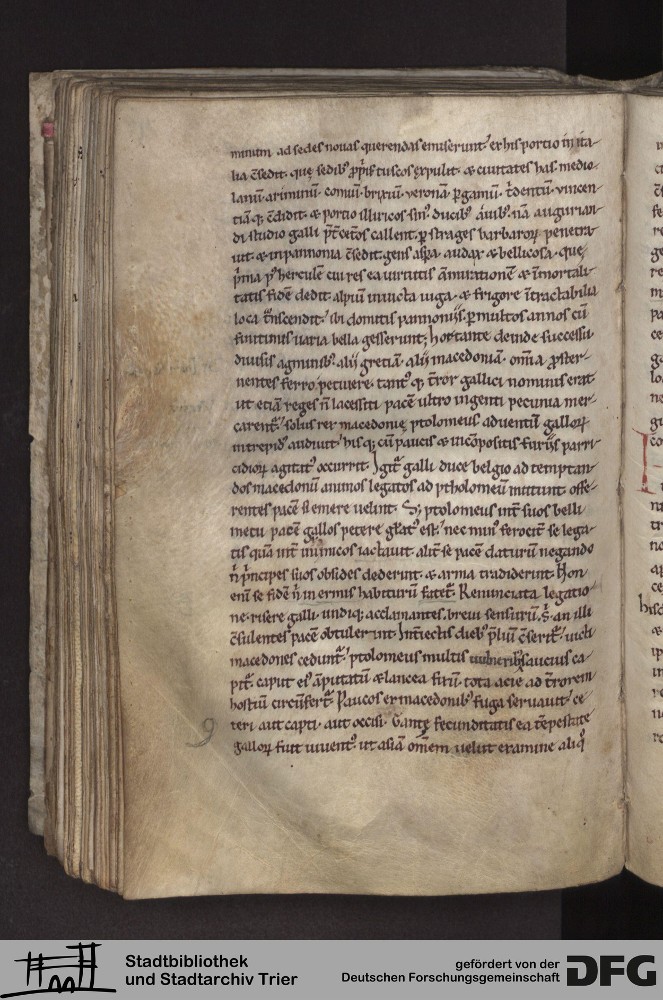 minum ad sedes nouas querendas emiserunt. ex his portio in ita-
lia c̄sedit. quę sedib; ꝓp̄iis tuscos expulit. & ciuitates has. medio-
lanū. ariminū. comū. brixiā. veronā. ꝑgamū. t̄dentū. vincen-
tiā q; c̄didit. & portio illiricos sinꝰ. ducibꝰ auibꝰ. nā augurian-
di studio galli p̄t cet̄os callent. ꝑ strages barbaroꝝ penetra-
uit. & in pannonia c̄sedit. gens aspa. audax & bellicosa. quę
p̄ma pꝰ herculē cui res ea uirtutis āmirationē & īmortali-
tatis fidē dedit. alpiū inuicta iuga. & frigore ītractabilia
loca t̄nscendit. ibi domitis pannoniis. ꝑ multos annos cū
finitimis uaria bella gesserunt. hortante deinde successu
diuisis agminibꝰ. alii greciā. alii macedoniā. om̄a ꝓster-
nentes ferro petiuere. tantꝰ q; t̄ror gallici nominis erat
ut etiā reges n̄ lacessiti pacē ultro ingenti pecunia mer-
carent̄. solus rex macedonię ptolomeus aduentū galloꝝ
intrepidꝰ audiuit. his q; cū paucis & incōpositis furiis parri-
cidioꝝ agitatꝰ occurrit. Igit̄ galli duce belgio ad temptan-
dos macedonū animos legatos ad ptholomeū mittunt. offe-
rentes pacē si emere uelint. S; ptolomeus int̄ suos belli
metu pacē gallos petere gl̄atꝰ est. nec minꝰ ferocit̄ se lega-
tis quā int̄ inimicos iactauit. alit̄ se pacē daturū negando
n̄ p̄ncipes suos obsides dederint. & arma tradiderint. Non
enī se fidē n̄ inermis habiturū fatet̄. Renunciata legatio-
ne. risere galli. undiq; acclamantes. breui sensurū. s̄. an illi
c̄sulentes pacē obtulerint. Int̄iectis diebꝰ p̄liū c̄serit̄. uicti
macedones cedunt̄. ptolomeus multis uulnerib; saucius ca-
pit̄. caput eiꝰ āputatū & lancea fixū. tota acie ad t̄rorem
hostiū circūfert̄. Paucos ex macedonibꝰ fuga seruauit. ce-
teri aut capti. aut occisi. Gantę fecunditatis ea tēpestate
galloꝝ fuit iuuentꝰ. ut asiā om̄em uelut examine aliq̊
9
Stadtbibliothek
und Stadtarchiv Trier
gefördert von der
Deutschen Forschungsgemeinschaft
DFG